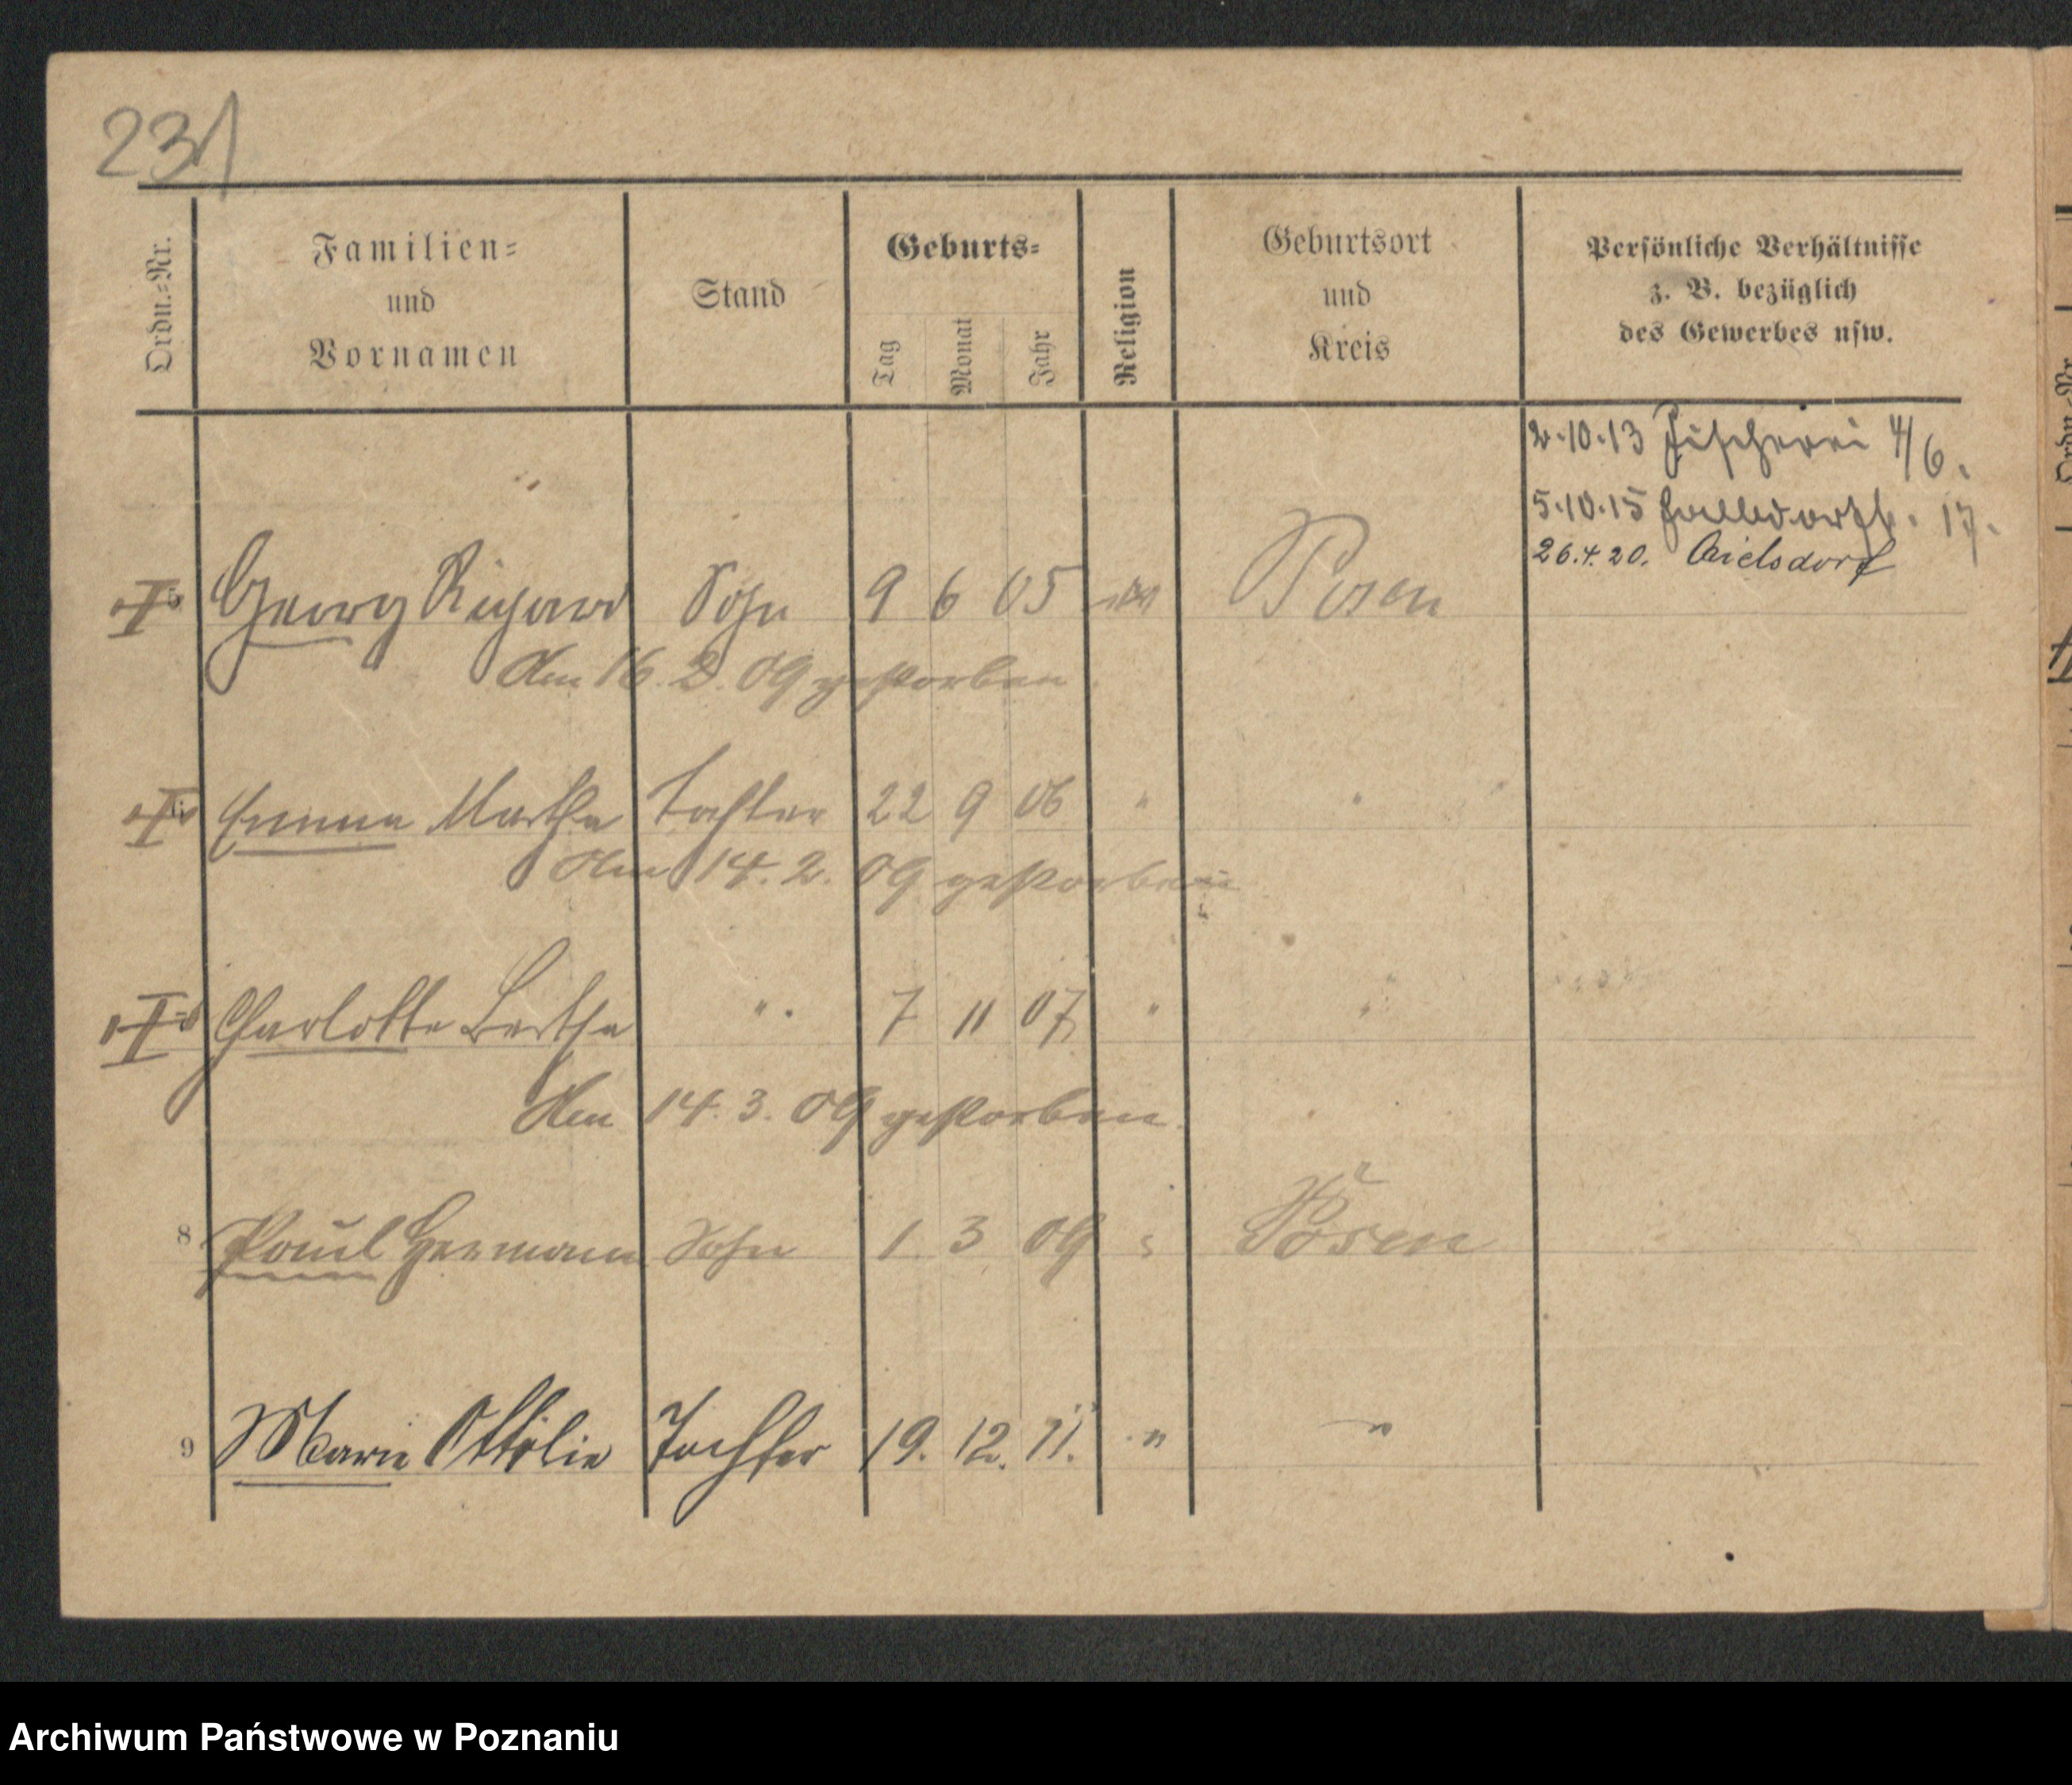 231
Ordn.-Nr.
Familien-
und
Vornamen
Stand
Geburts-
Tag
Monat
Jahr
Religion
Geburtsort
und
Kreis
Persönliche Verhältnisse
z. B. bezüglich
des Gewerbes usw.
2.10.13 Fischerei 4/6.
5.10.15 17.
26.4.20.
Georg Richard Sohn 9 6 05 Posen
Am 16. 2. 09 gestorben
Emma Martha Tochter 22 9 06 " "
Am 14. 2. 09 gestorben
Charlotte Bertha " 7 11 07 " "
Am 14. 3. 09 gestorben.
8 Paul Hermann Sohn 1 3 09 Posen
9 Marie Ottilie Tochter 19. 12. 11. " "
Archiwum Państwowe w Poznaniu